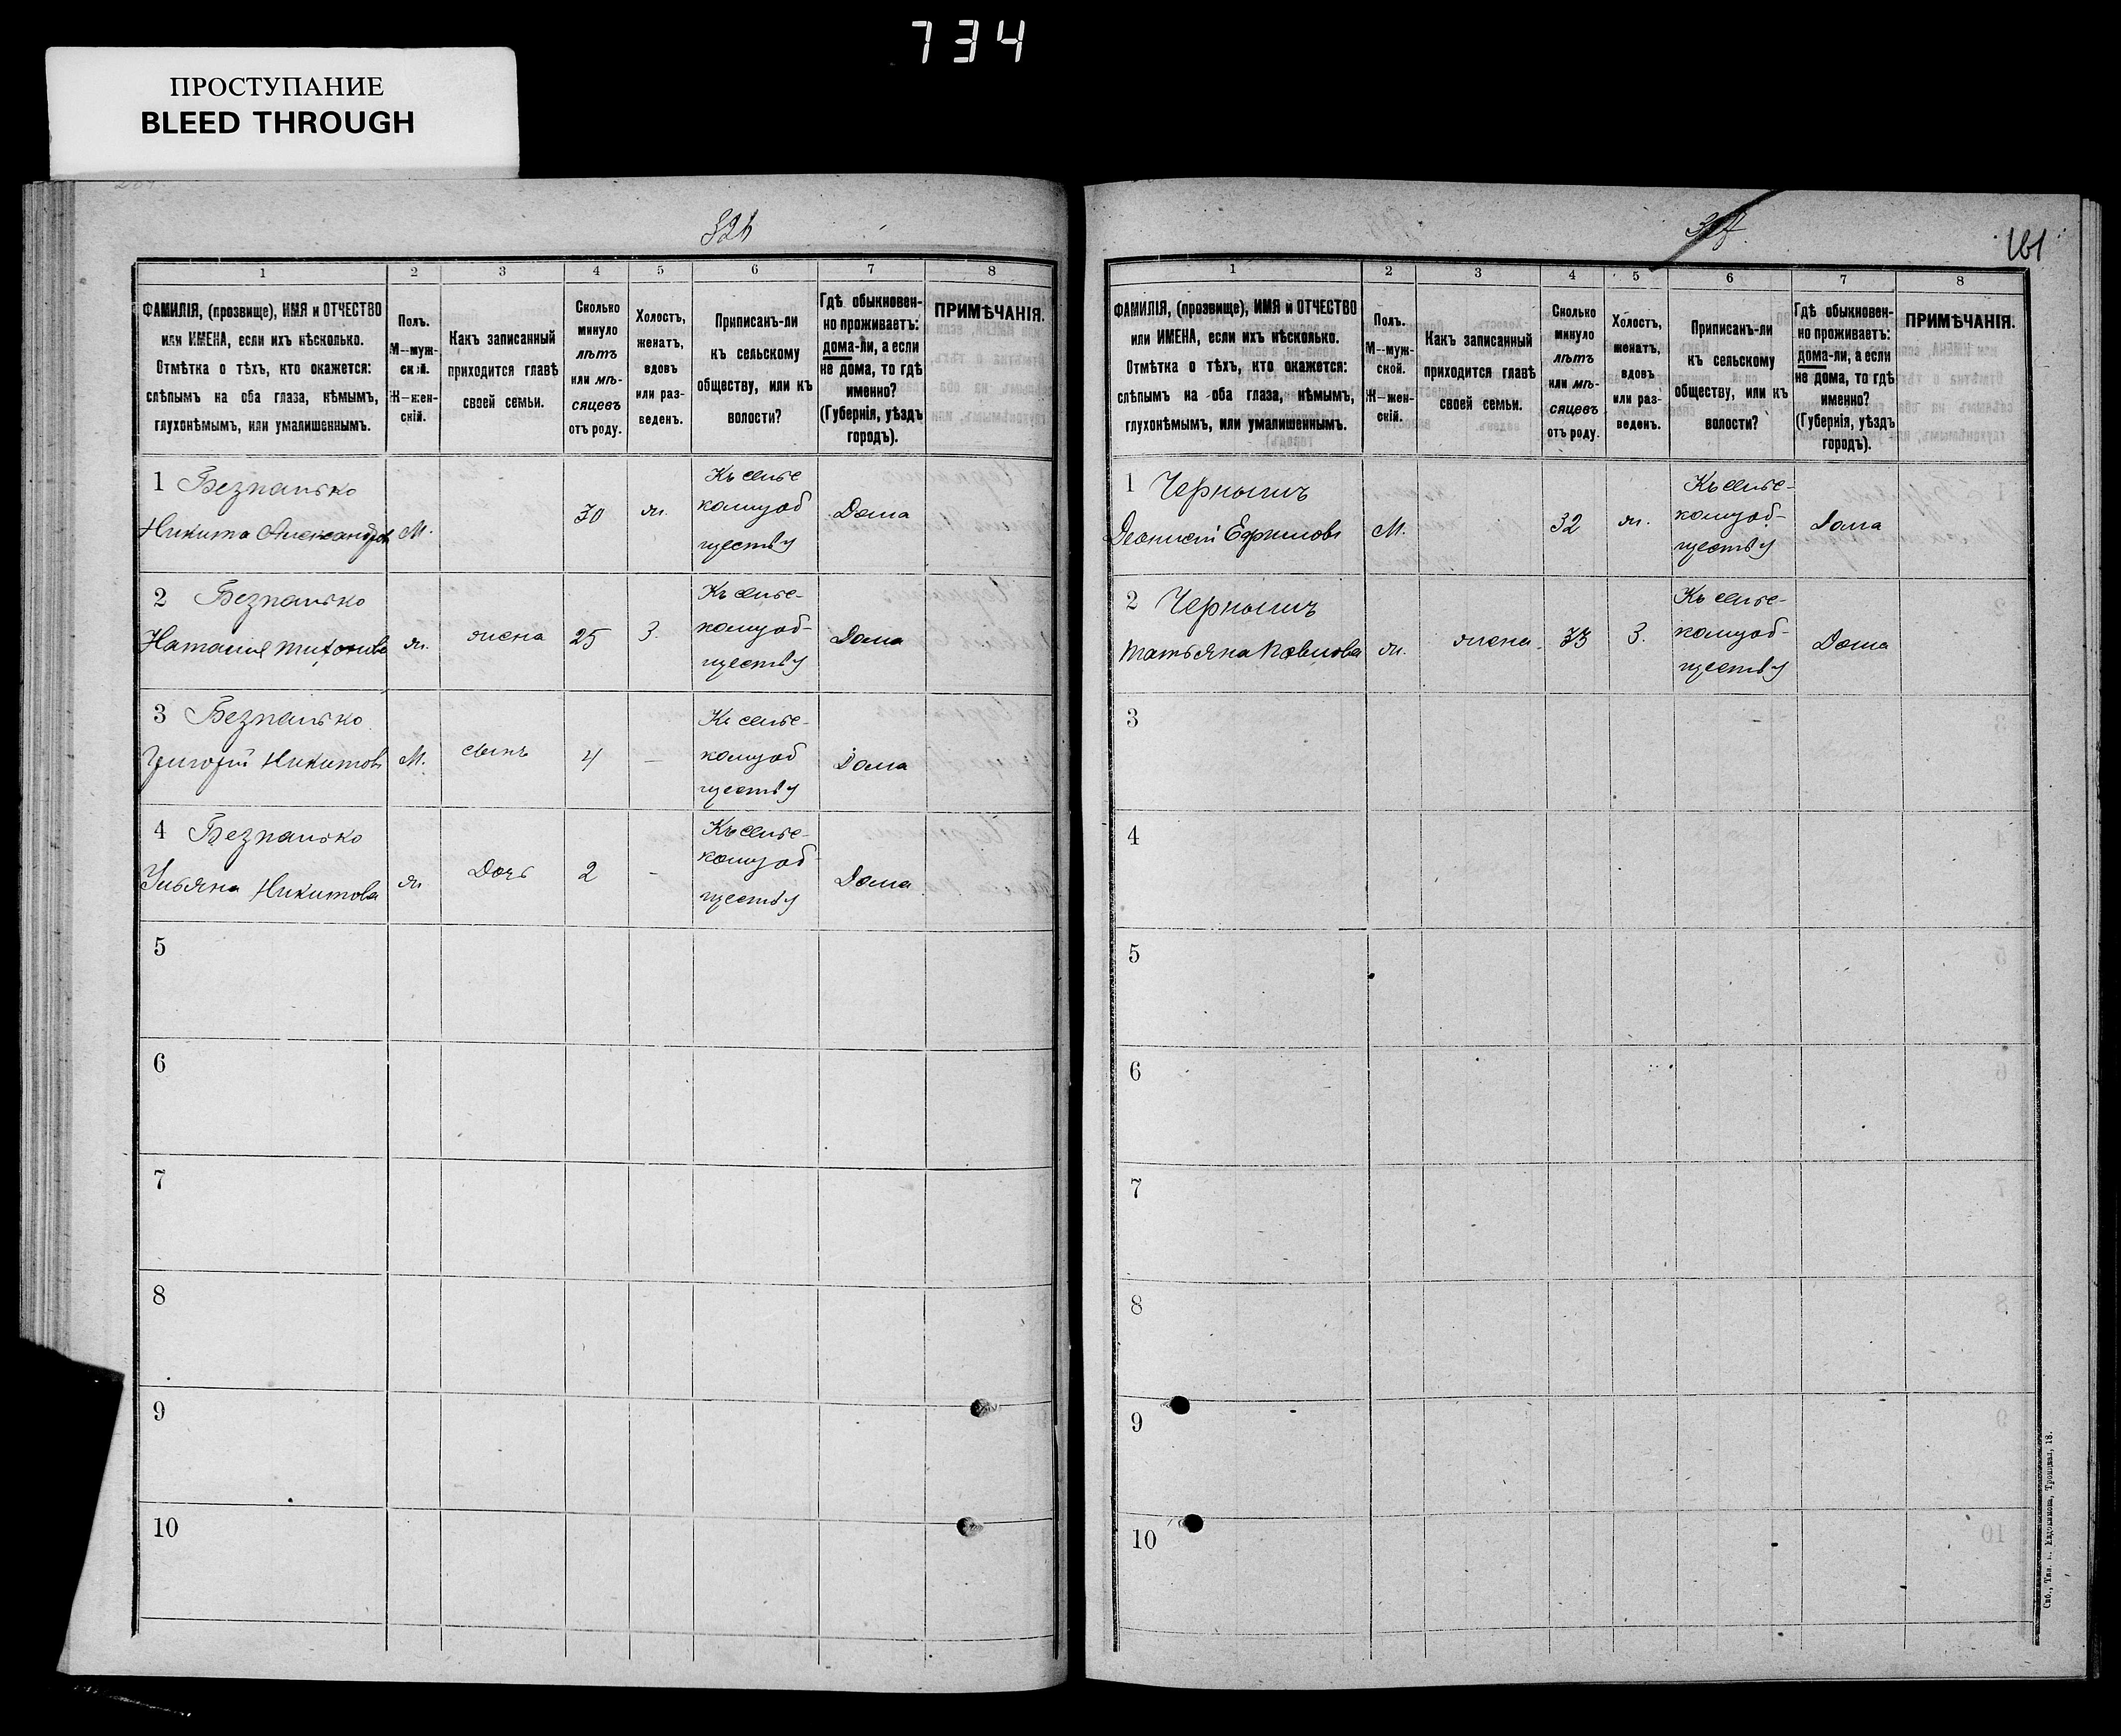 734
ПРОСТУПАНИЕ
BLEED THROUGH
1 2 3 4 5 6 7 8
ФАМИЛІЯ, (прозвище), ИМЯ и ОТЧЕСТВО
или ИМЕНА, если ихъ нѣсколько.
Отмѣтка о тѣхъ, кто окажется:
слѣпымъ на оба глаза, нѣмымъ,
глухонѣмымъ, или умалишеннымъ.
Полъ.
М—муж-
ской.
Ж—жен-
скій.
Какъ записанный
приходится главѣ
своей семьи.
Сколько
минуло
лѣтъ
или мѣ-
сяцевъ
отъ роду.
Холостъ,
женатъ,
вдовъ
или раз-
веденъ.
Приписанъ-ли
къ сельскому
обществу, или къ
волости?
Гдѣ обыкновен-
но проживаетъ:
дома-ли, а если
не дома, то гдѣ
именно?
(Губернія, уѣздъ
городъ).
ПРИМѢЧАНІЯ.
1 Безпалько
Никита Александровъ
М.
30
ж.
Къ сельс
кому об
ществу
Дома
2 Безпалько
Наталия Тихонова
ж.
жена
25
З.
Къ сельс-
кому об-
ществу
Дома
3 Безпалько
Григорій Никитовъ
М.
сынъ
4
—
Къ сельс-
кому об
ществу
Дома
4 Безпалько
Ульяна Никитова
ж
Дочь
2
-
Къ сельс-
кому об-
ществу
Дома
5
6
7
8
9
10
161
1 2 3 4 5 6 7 8
ФАМИЛІЯ, (прозвище), ИМЯ и ОТЧЕСТВО
или ИМЕНА, если ихъ нѣсколько.
Отмѣтка о тѣхъ, кто окажется:
слѣпымъ на оба глаза, нѣмымъ,
глухонѣмымъ, или умалишеннымъ.
Полъ.
М—муж-
ской.
Ж—жен-
скій.
Какъ записанный
приходится главѣ
своей семьи.
Сколько
минуло
лѣтъ
или мѣ-
сяцевъ
отъ роду.
Холостъ,
женатъ,
вдовъ
или раз-
веденъ.
Приписанъ-ли
къ сельскому
обществу, или къ
волости?
Гдѣ обыкновен-
но проживаетъ:
дома-ли, а если
не дома, то гдѣ
именно?
(Губернія, уѣздъ
городъ).
ПРИМѢЧАНІЯ.
1 Чернышъ
Деонисій Ефимовъ
М.
32
ж.
Къ сельс-
кому об-
ществу
Дома
2 Чернышъ
Татьяна Павлова
ж.
жена
33
З.
Къ сельс-
кому об-
ществу
Дома
3
4
5
6
7
8
9
10